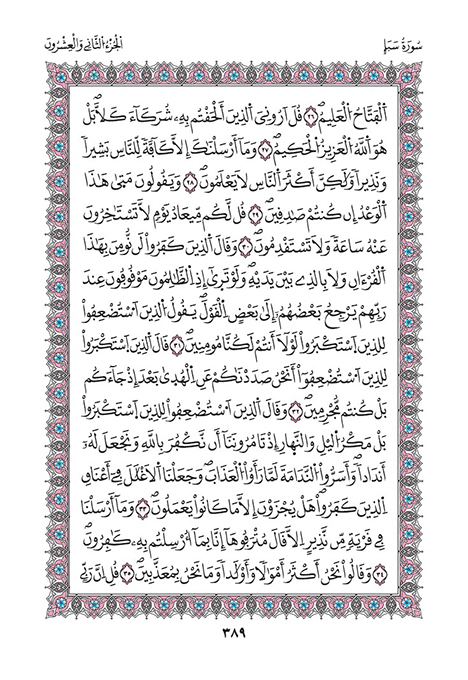 سُورَةُ سَبَإٖ
اَ۬لْجُزْءُ اُ۬لثَّانِي وَالْعِشْرُونَ
اَ۬لْفَتَّاحُ اُ۬لْعَلِيمُۖ ٢٦ قُلَ اَرُونِيَ اَ۬لذِينَ أَلْحَقْتُم بِهِۦ شُرَكَآءَ كَلَّاۖ بَلْ
هُوَ اَ۬للَّهُ اُ۬لْعَزِيزُ اُ۬لْحَكِيمُۖ ٢٧ وَمَآ أَرْسَلْنَٰكَ إِلَّا كَآفَّةٗ لِّلنَّاسِ بَشِيراٗ
وَنَذِيراٗ وَلَٰكِنَّ أَكْثَرَ اَ۬لنَّاسِ لَا يَعْلَمُونَۖ ٢٨ وَيَقُولُونَ مَتَىٰ هَٰذَا
اَ۬لْوَعْدُ إِن كُنتُمْ صَٰدِقِينَۖ ٢٩ قُل لَّكُم مِّيعَادُ يَوْمٖ لَّا تَسْتَٰخِرُونَ
عَنْهُ سَاعَةٗ وَلَا تَسْتَقْدِمُونَۖ ٣٠ وَقَالَ اَ۬لذِينَ كَفَرُواْ لَن نُّومِنَ بِهَٰذَا
اَ۬لْقُرْءَانِ وَلَا بِالذِے بَيْنَ يَدَيْهِۖ وَلَوْ تَرَىٰٓ إِذِ اِ۬لظَّٰلِمُونَ مَوْقُوفُونَ عِندَ
رَبِّهِمْ يَرْجِعُ بَعْضُهُمُۥٓ إِلَىٰ بَعْضٍ اِ۬لْقَوْلَۖ يَقُولُ اُ۬لذِينَ اَ۟سْتُضْعِفُواْ
لِلذِينَ اَ۪سْتَكْبَرُواْ لَوْلَآ أَنتُمْ لَكُنَّا مُومِنِينَۖ ٣١ قَالَ اَ۬لذِينَ اَ۪سْتَكْبَرُواْ
لِلذِينَ اَ۟سْتُضْعِفُوٓاْ أَنَحْنُ صَدَدْنَٰكُمْ عَنِ اِ۬لْهُدَىٰ بَعْدَ إِذْ جَآءَكُم
بَلْ كُنتُم مُّجْرِمِينَۖ ٣٢ وَقَالَ اَ۬لذِينَ اَ۟سْتُضْعِفُواْ لِلذِينَ اَ۪سْتَكْبَرُواْ
بَلْ مَكْرُ اُ۬ليْلِ وَالنَّهارِ إِذْ تَامُرُونَنَآ أَن نَّكْفُرَ بِاللَّهِ وَنَجْعَلَ لَهُۥٓ
أَندَاداٗۖ وَأَسَرُّواْ اُ۬لنَّدَامَةَ لَمَّا رَأَوُاْ اُ۬لْعَذَابَۖ وَجَعَلْنَا اَ۬لَاغْلَٰلَ فِےٓ أَعْنَاقِ
اِ۬لذِينَ كَفَرُواْۖ هَلْ يُجْزَوْنَ إِلَّا مَا كَانُواْ يَعْمَلُونَۖ ٣٣ وَمَآ أَرْسَلْنَا
فِے قَرْيَةٖ مِّن نَّذِيرٍ اِلَّا قَالَ مُتْرَفُوهَآ إِنَّا بِمَآ أُرْسِلْتُم بِهِۦ كَٰفِرُونَۖ
٣٤ وَقَالُواْ نَحْنُ أَكْثَرُ أَمْوَٰلاٗ وَأَوْلَٰداٗ وَمَا نَحْنُ بِمُعَذَّبِينَۖ ٣٥ قُلِ اِنَّ رَبِّے
٣٨٩